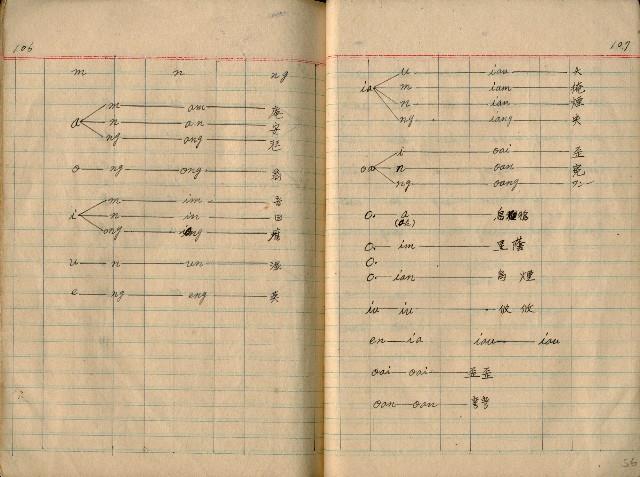 106
m n ng
m am 庵
a n an 安
ng ang
o ng ong 翁
m im 音
i n in 因
ong iong
u n un 溫
e ng eng 英
107
u iau 夭
ia m iam 掩
n ian 煙
ng iang 央
i oai 歪
oa n oan 冤
ng oang
o. a
(ah)
o. im 烏蔭
o.
o. ian 烏煙
iu iu 攸攸
en ia iau iau
oai oai 歪歪
oan oan 彎彎
56